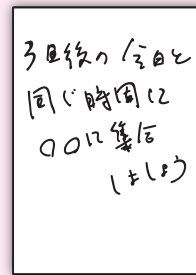 3日後の今日と
同じ時間に
〇〇に集合
しましょう